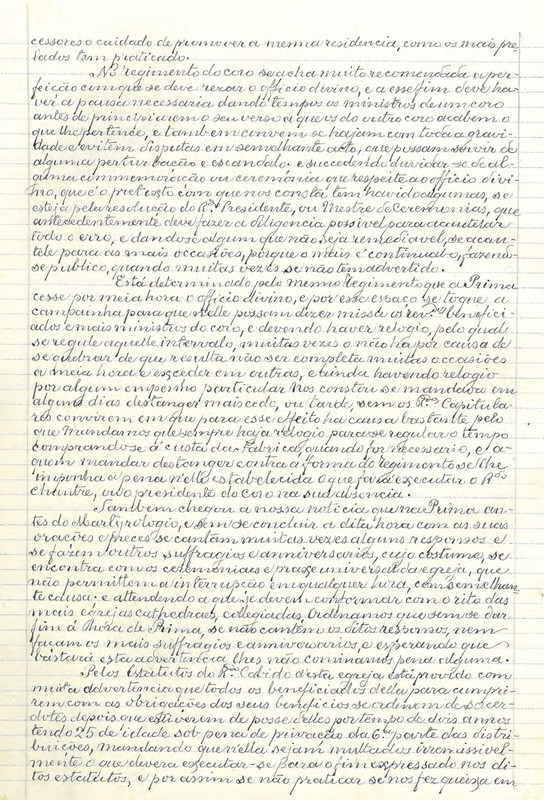 cessores o cuidado de promover a mesma residencia, como os mais pre-
lados tem praticado.
No regimento do coro se acha muito recomendada a per-
feição com que se deve rezar o officio divino, e a esse fim deve ha-
ver a pausa necessaria dando tempo os ministros de um coro
antes de principiarem o seu verso a que os do outro coro acabem o
que lhe pertence, e tambem convem se hajam com toda a gravi-
dade e evitem disputas em semelhante acto, que possam servir de
alguma perturbação e escandalo. e succedendo duvidar-se de al-
guma commemoração ou ceremonia que respeite ao officio divi-
no, que é o pretexto com que nos consta tem havido algumas, se
esteja pela resolução do R.do Presidente, ou Mestre de Ceremonias, que
antecedentemente deve fazer a diligencia possivel para acautelar
todo o erro, e dando-se algum que não seja remediavel, se acau-
tele para as mais occasiões, porque o mais é continual-o, fazendo-
se publico, quando muitas vezes se não tem advertido.
Está determinado pelo mesmo Regimento que a Prima
cesse por meia hora o officio divino, e por esse espaço se toque a
campainha para que nelle possam dizer missa os rev.dos benefici-
ados e mais ministros do coro, e devendo haver relogio, pelo qual
se regule aquelle intervalo, muitas vezes o não ha por causa de
se quebrar de que resulta não ser completa muitas occasiões
a meia hora e exceder em outras, e ainda havendo relogio
por algum empenho particular Nos constou se mandava em
alguns dias destanger mais cedo, ou tarde, sem os R.dos Capitula-
res convirem em que para esse effeito ha causa bastante pelo
que Mandamos que sempre haja relogio para se regular o tempo
comprando-se á custa da Fabrica, quando for necessario, e a
quem mandar destanger contra a forma do regimento se lhe
imponha a pena n'elle estabelecida o que fará executar o R.do
chantre, ou o presidente do coro na sua ausencia.
Tambem chegou a nossa noticia que na Prima an-
tes do Martyrologio, e sem se concluir a dita hora com as suas
orações e preces se cantam muitas vezes alguns responsos e
se fazem outros suffragios e anniversarios, cujo costume, se
encontra com os ceremoniaes e praxe universal da egreja, que
não permittem a interrupção em qualquer hora, com semelhan-
te causa. e attendendo a que se devem conformar com o rito das
mais egrejas cathedraes, collegiadas, Ordinamos que sem se dar
fim á Hora de Prima, se não cantem os ditos responsos, nem
façam os mais suffragios e anniversarios, e esperando que
bastará esta advertencia lhes não cominamos pena alguma.
Pelos Estatutos do R.do Cabido d'esta egreja está provido com
muita advertencia que todos os beneficiados della para cumpri-
rem com as obrigações dos seus beneficios se ordinem de sacer-
dotes depois que estiverem de posse delles por tempo de dois annos
tendo 25 de idade sob pena de privação da 6.ª parte das distri-
buições, mandando que nella sejam multados irremissivel-
mente o que devera executar-se para o fim expressado nos di-
tos estatutos, e por assim se não praticar se nos fez queixa em